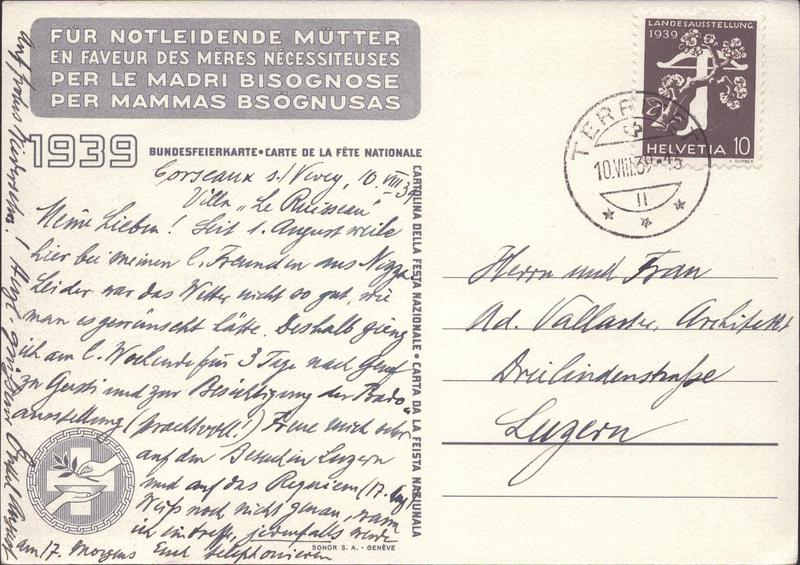 FÜR NOTLEIDENDE MÜTTER
EN FAVEUR DES MÈRES NÉCESSITEUSES
PER LE MADRI BISOGNOSE
PER MAMMAS BSÖGNUSAS
1939
BUNDESFEIERKARTE • CARTE DE LA FÊTE NATIONALE
CARTOLINA DELLA FESTA NAZIONALE • CARTA DA LA FEISTA NAZIUNALA
Corseaux s./ Vevey, 10. VIII 39
Villa „Le Ruisseau"
Meine Lieben! Seit 1. August weile
hier bei meinen l. Freunden aus Nizza
Leider war das Wetter nicht so gut, wie
man es gewünscht hätte. Deshalb gieng
ich am l. Wochende für 3 Tage nach Genf
zu Gusti und zur Besichtigung der Prado
ausstellung (prachtvoll!) Freue mich sehr
auf den Besuch in Luzern
und auf das Requiem (17. Aug)
Weiß noch nicht genau, wann
ich eintreffe, jedenfalls werde
am 17. Morgens Euch telephonieren
Auf frohes Wiedersehn!
Onkel August
SONOR S. A. - GENÈVE
LANDESAUSSTELLUNG
1939
HELVETIA 10
10.VIII.39
II
Herrn und Frau
Ad. Vallaster, Architekt
Dreilindenstraße
Luzern